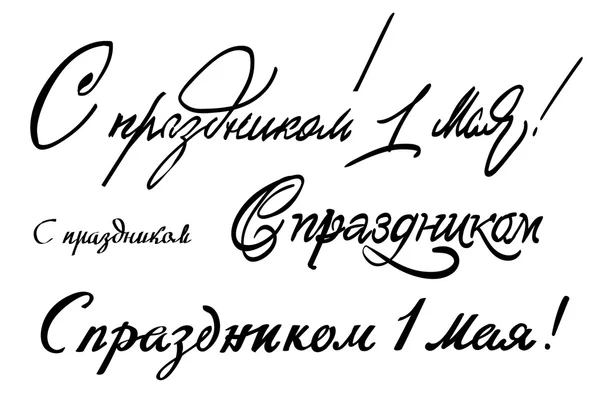 С праздником 1 мая!
С праздником
С праздником
С праздником 1 мая!